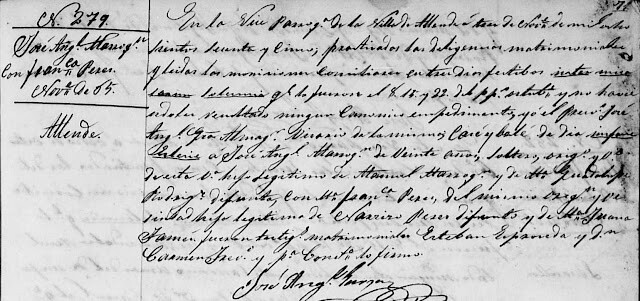 N. 279.
José Angl. Marroqn.
Con Franca. Peres.
Novre. de 65.
Allende.
En la Vice Parroqa. de la Villa de Allende a tres de Novre. de mil ochosientos sesenta y Cinco, practicadas las deligencias matrimoniales
y leidas las moniciones Conciliares en tres dias festibos inter missarum
solemnia qe. lo fueron el 8, 15, y 22 de ppo. octubre, y no haviendoles
resultado ningun Canonico empedimento, yo el Presvo. José
Angl. Gza. Vicario de la misma, Casé y velé de dia infacie
Eclecie a José Angl. Marroqn. de Veinte años, soltero, orign. y V.
de esta Va. hijo legitimo de Manuel Marroqn. y de Ma. Guadalupe
Rodrigz. difunta, Con Ma. Franca. Peres, del mismo origen y vesindad
hija legitima de Narziso Peres difunto y de Ma. Juana
fueron testigs. matrimoniales Esteban Esproneda y dn.
Carmen y pa. Consta. lo firmo.
José Angl. Garza